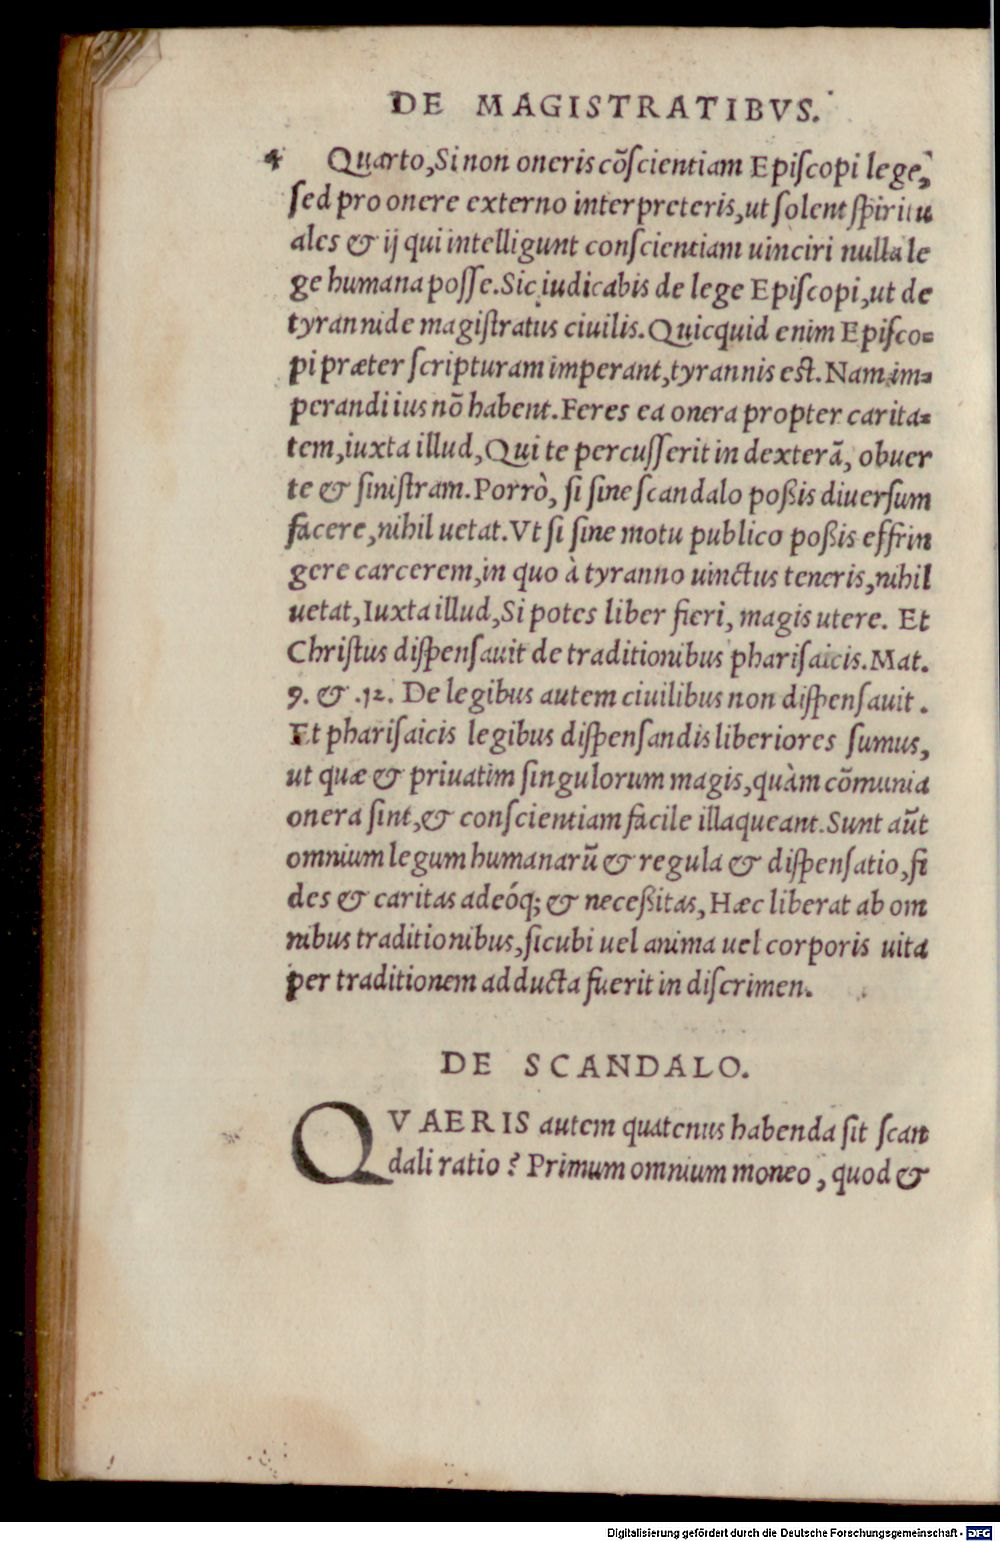 DE MAGISTRATIBVS.
4 Quarto, Si non oneris cõſcientiam Epiſcopi lege,
ſed pro onere externo interpreteris, ut ſolent ſpiritu
ales & ij qui intelligunt conſcientiam uinciri nulla le
ge humana poſſe. Sic iudicabis de lege Epiſcopi, ut de
tyrannide magiſtratus ciuilis. Quicquid enim Epiſco=
pi præter ſcripturam imperant, tyrannis eſt. Nam im=
perandi ius nõ habent. Feres ea onera propter carita=
tem, iuxta illud, Qui te percuſſerit in dexterã, obuer
te & ſiniſtram. Porrò, ſi ſine ſcandalo poßis diuerſum
facere, nihil uetat. Vt ſi ſine motu publico poßis effrin
gere carcerem, in quo à tyranno uinctus teneris, nihil
uetat, Iuxta illud, Si potes liber fieri, magis utere. Et
Chriſtus diſpenſauit de traditionibus phariſaicis. Mat.
9. & .12. De legibus autem ciuilibus non diſpenſauit.
Et phariſaicis legibus diſpenſandis liberiores ſumus,
ut quæ & priuatim ſingulorum magis, quàm cõmunia
onera ſint, & conſcientiam facile illaqueant. Sunt aũt
omnium legum humanarũ & regula & diſpenſatio, fi
des & caritas adeóq; & neceßitas, Hæc liberat ab om
nibus traditionibus, ſicubi uel anima uel corporis uita
per traditionem adducta fuerit in diſcrimen.
DE SCANDALO.
QVAERIS autem quatenus habenda ſit ſcan
dali ratio? Primum omnium moneo, quod &
Digitalisierung gefördert durch die Deutsche Forschungsgemeinschaft - DFG